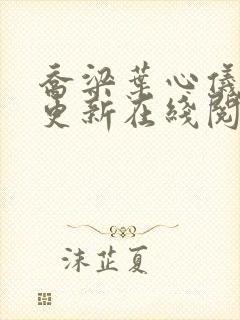 乔梁葉心儀
更新在綫閱
沫芷夏